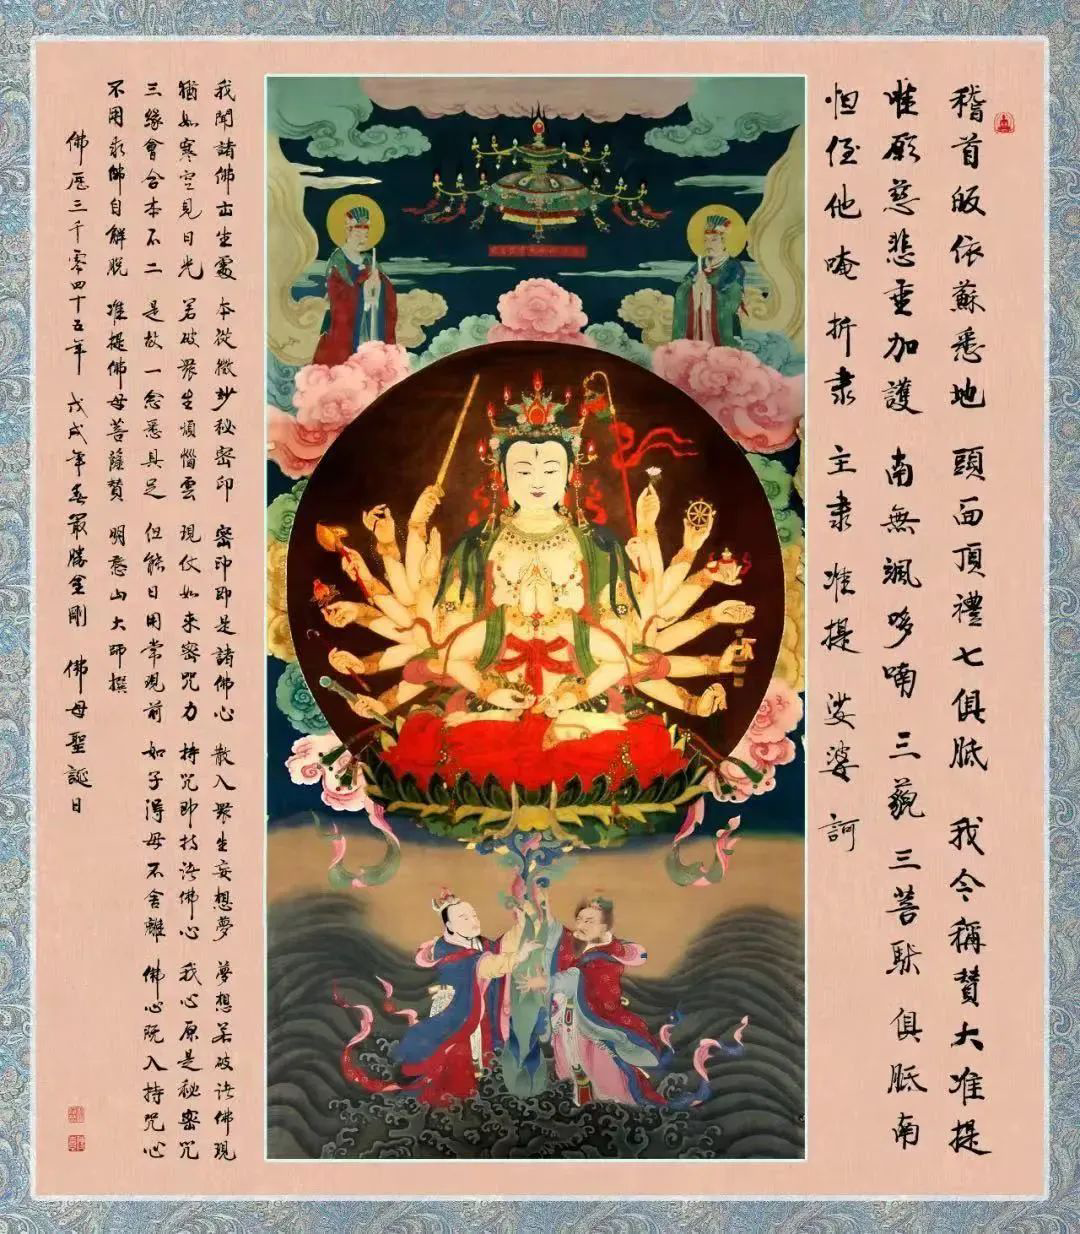 稽首皈依蘇悉地 頭面頂禮七俱胝 我今稱贊大准提
唯願慈悲垂加護 南無颯哆喃三藐三菩馱俱胝南
怛侄他唵折隶主隶准提娑婆訶
我聞諸佛出生處 本從微妙秘密印 密印即是諸佛心 散入眾生妄想夢 夢想若破諸佛現
猶如寒空見日光 若破眾生煩惱雲 現仗如来密咒力 持咒即持諸佛心 我心原是秘密咒
三緣會合本不二 是故一念悉具足 但能日用常現前 如子得母不舍離 佛心既入持咒心
不用求佛自解脫 准提佛母菩薩贊 明憨山大師撰
佛厯三千零四十五年 戊戌年春最勝金剛 佛母聖誕日